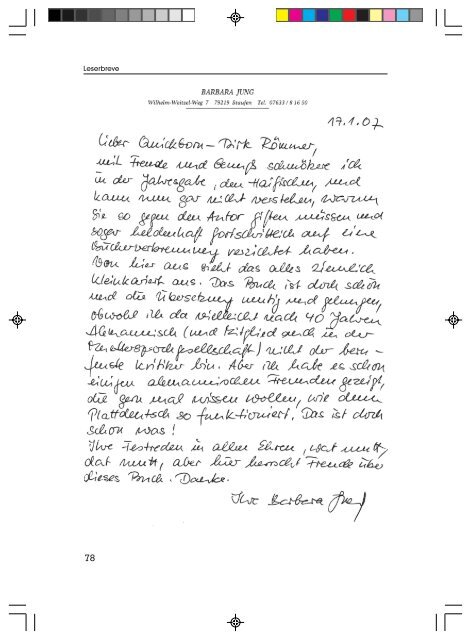 Leserbreve
BARBARA JUNG
Wilhelm-Weitzel-Weg 7 79219 Staufen Tel. 07633/81650
17.1.07
Lieber Quickborn – Dirk Römmer,
mit Freude und Genuß schmökere ich
in der Jahresgabe, den Haifischen, und
kann nun gar nicht verstehen, warum
Sie so gegen den Autor giften müssen und
sogar heldenhaft fortschrittlich auf eine
Bücherverbrennung verzichtet haben.
Von hier aus sieht das alles ziemlich
kleinkariert aus. Das Buch ist doch schön
und die Übersetzung mutig und gelungen,
obwohl ich da vielleicht nach 40 Jahren
Alemannisch (und Mitglied auch in der
Muettersproch gesellschaft) nicht der beru-
fenste Kritiker bin. Aber ich habe es schon
einigen alemannischen Freunden gezeigt,
die gern mal wissen wollen, wie denn
Plattdeutsch so funktioniert. Das ist doch
schon was!
Ihre Festreden in allen Ehren, wat mutt,
dat mutt, aber hier herrscht Freude über
dieses Buch. Danke.
Ihre Barbara Jung
78